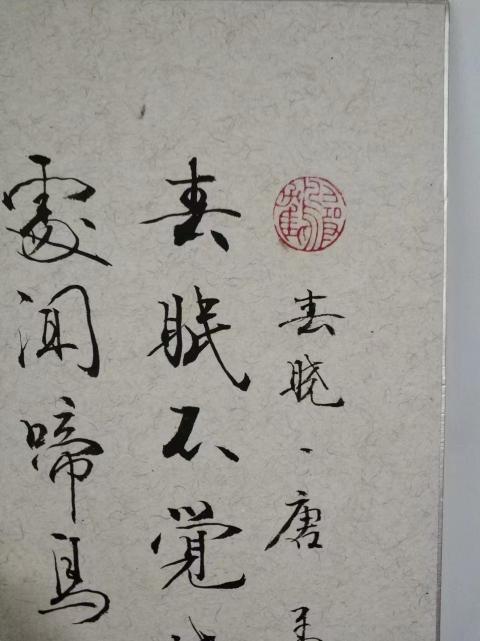 春晓、唐
春眠不覚
處闻啼鸟